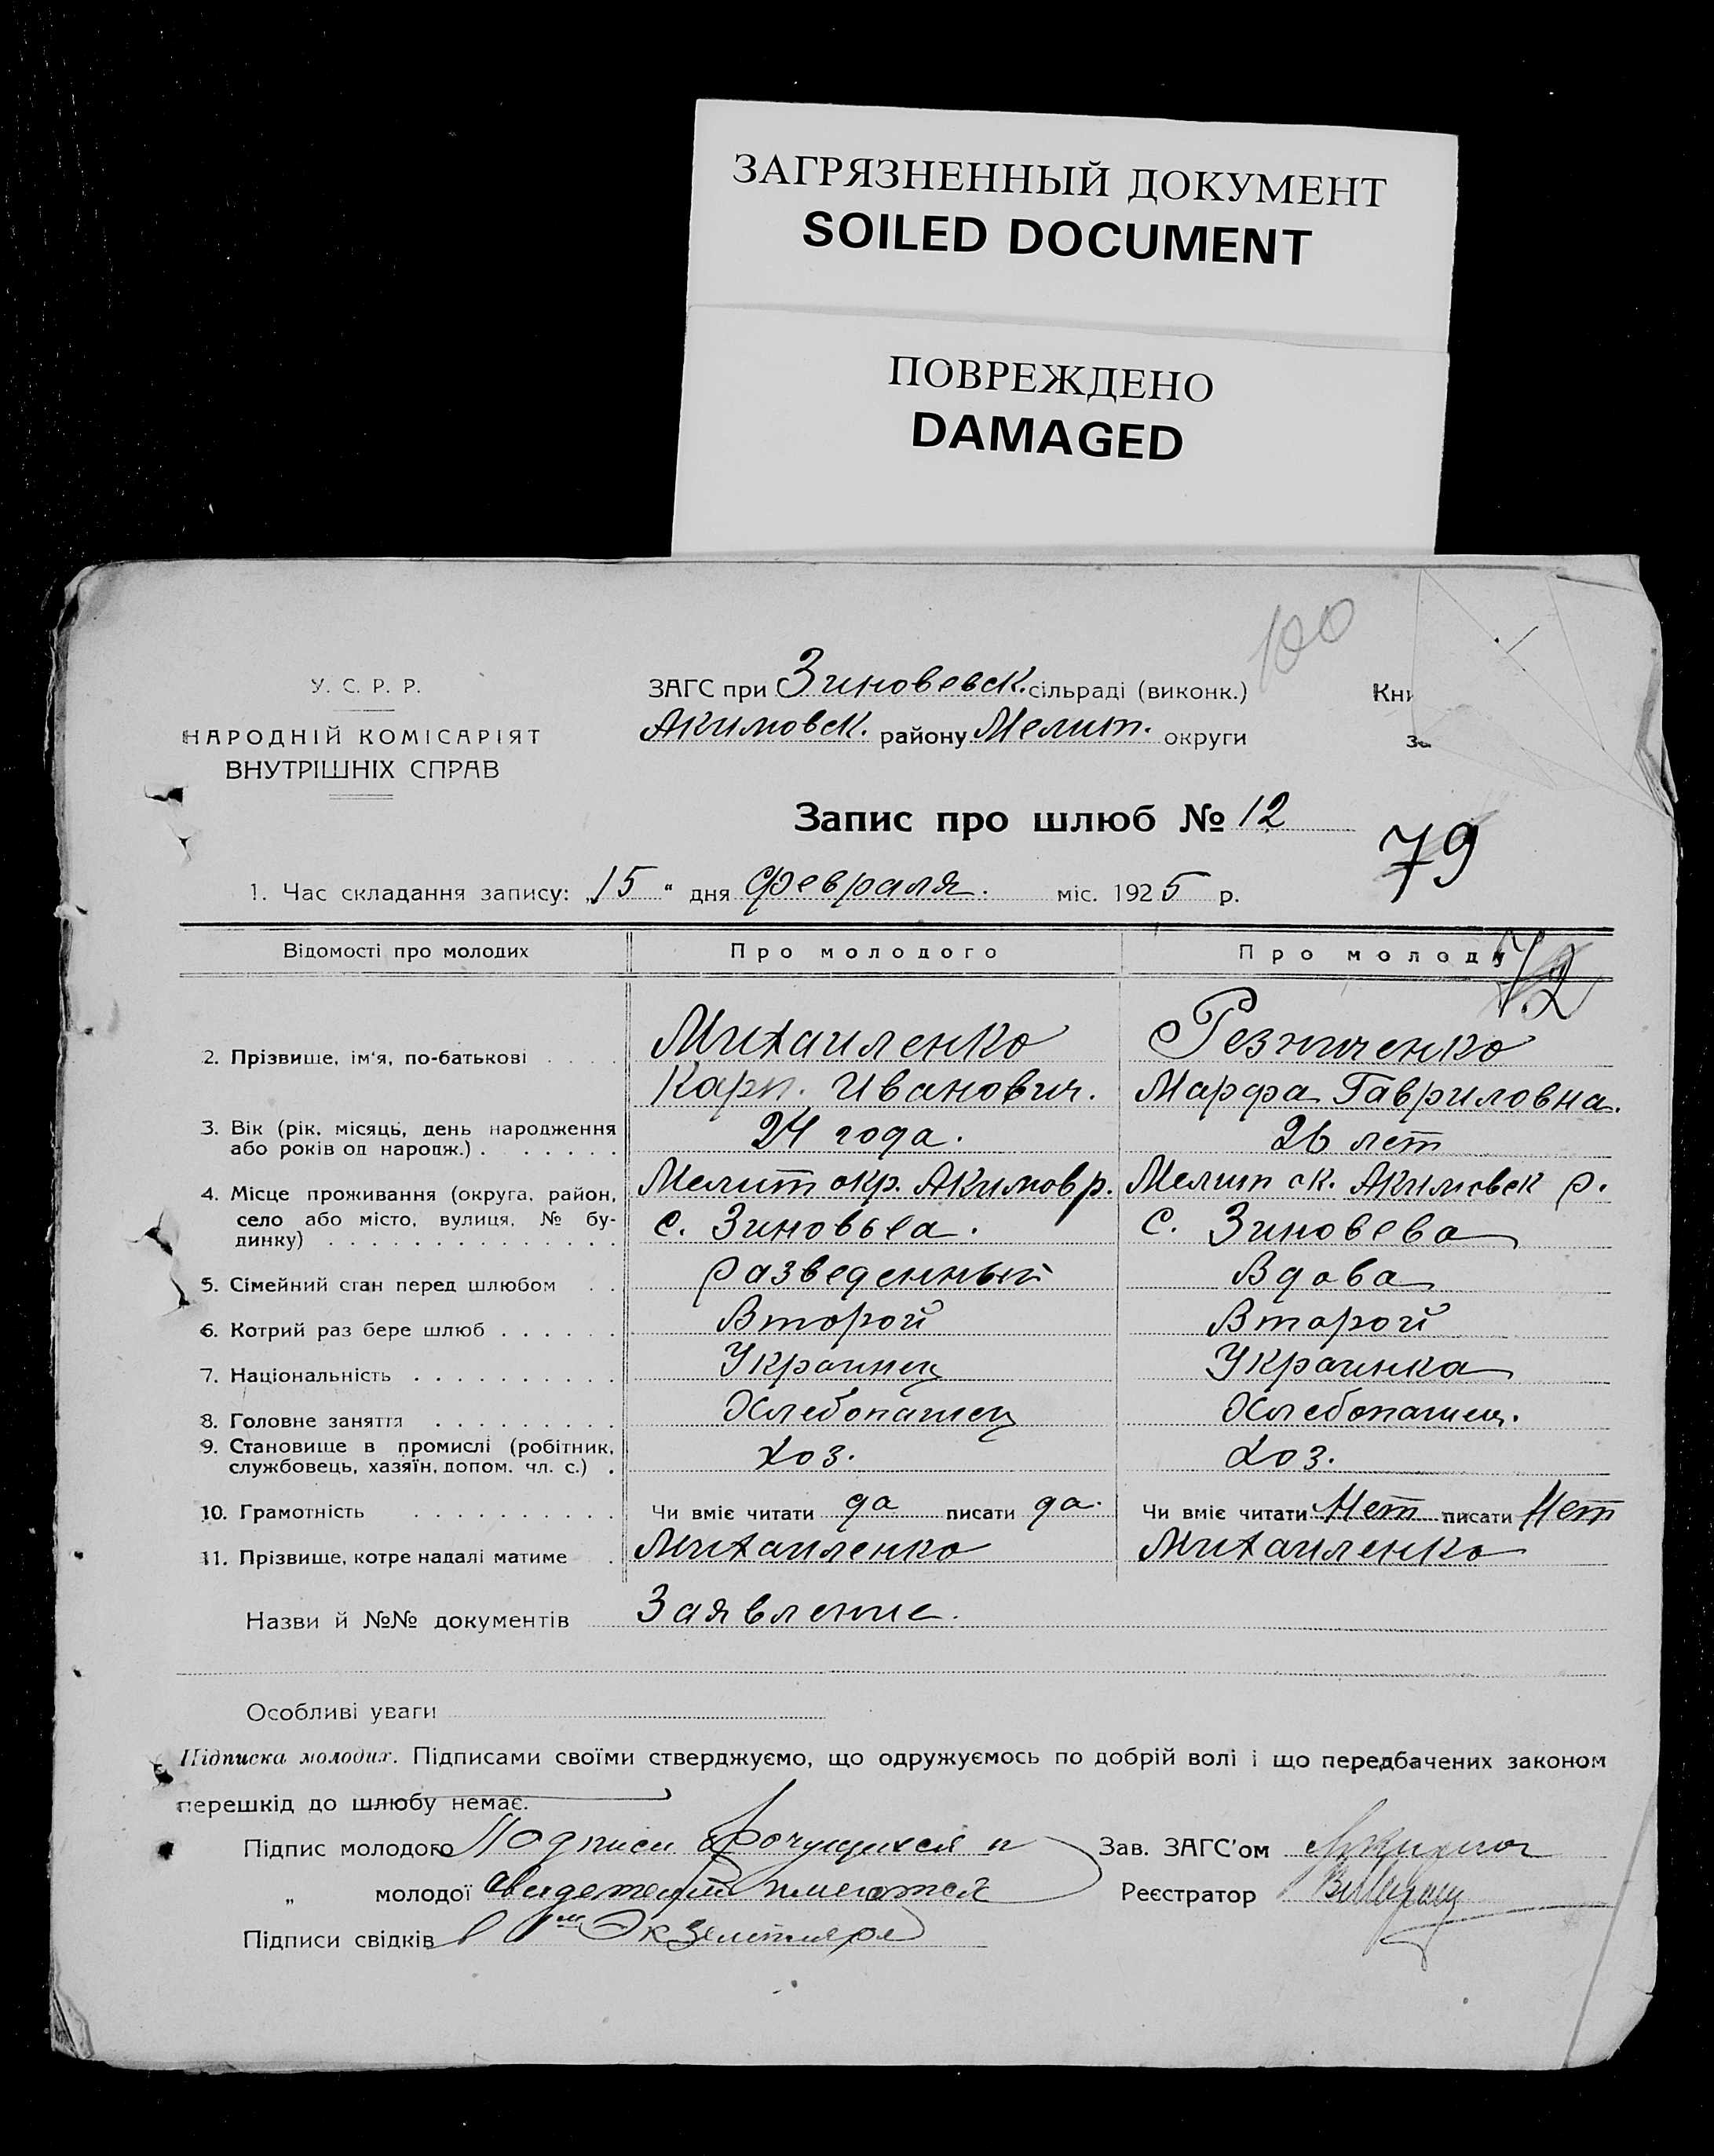 ЗАГРЯЗНЕННЫЙ ДОКУМЕНТ
SOILED DOCUMENT
ПОВРЕЖДЕНО
DAMAGED
100
У. С. Р. Р.
НАРОДНІЙ КОМІСАРІЯТ
ВНУТРІШНІХ СПРАВ
ЗАГС при Зиновевск. сільраді (виконк.)
Акимовск. району Мелит. округи
Кни
за
Запис про шлюб № 12
79
1. Час складання запису: „15 “ дня Февраля. міс. 1925 р.
Відомості про молодих Про молодого Про молоду
72
2. Прізвище, ім'я, по-батькові . . . . Михаиленко Резниченко
Карп. Иванович. Марфа Гавриловна.
3. Вік (рік, місяць, день народження
або років од народж.) . . . . . . 24 года. 26 лет
4. Місце проживання (округа, район, Мелит окр. Акимов р. Мелит ок. Акимовск р.
село або місто, вулиця, № бу-
динку) . . . . . . . . . . . . . . с. Зиновьева. с. Зиновева
5. Сімейний стан перед шлюбом . . разведенный Вдова
6. Котрий раз бере шлюб . . . . . . Второй Второй
7. Національність . . . . . . . . . . Украинец Украинка
8. Головне заняття . . . . . . . . . Хлебопашец Хлебопашец.
9. Становище в промислі (робітник,
службовець, хазяїн, допом. чл. с.) . хоз. хоз.
10. Грамотність . . . . . . . . . . Чи вміє читати да писати да. Чи вміє читати Нет писати Нет
11. Прізвище, котре надалі матиме . Михаиленко Михаиленко
Назви й №№ документів Заявление.
Особливі уваги
Підписка молодих. Підписами своїми стверджуємо, що одружуємось по добрій волі і що передбачених законом
перешкід до шлюбу немає.
Підпис молодого Подписи брачущихся и Зав. ЗАГС'ом
„ молодої свидетелей имеются Реєстратор
Підписи свідків в 1м Экземпляре